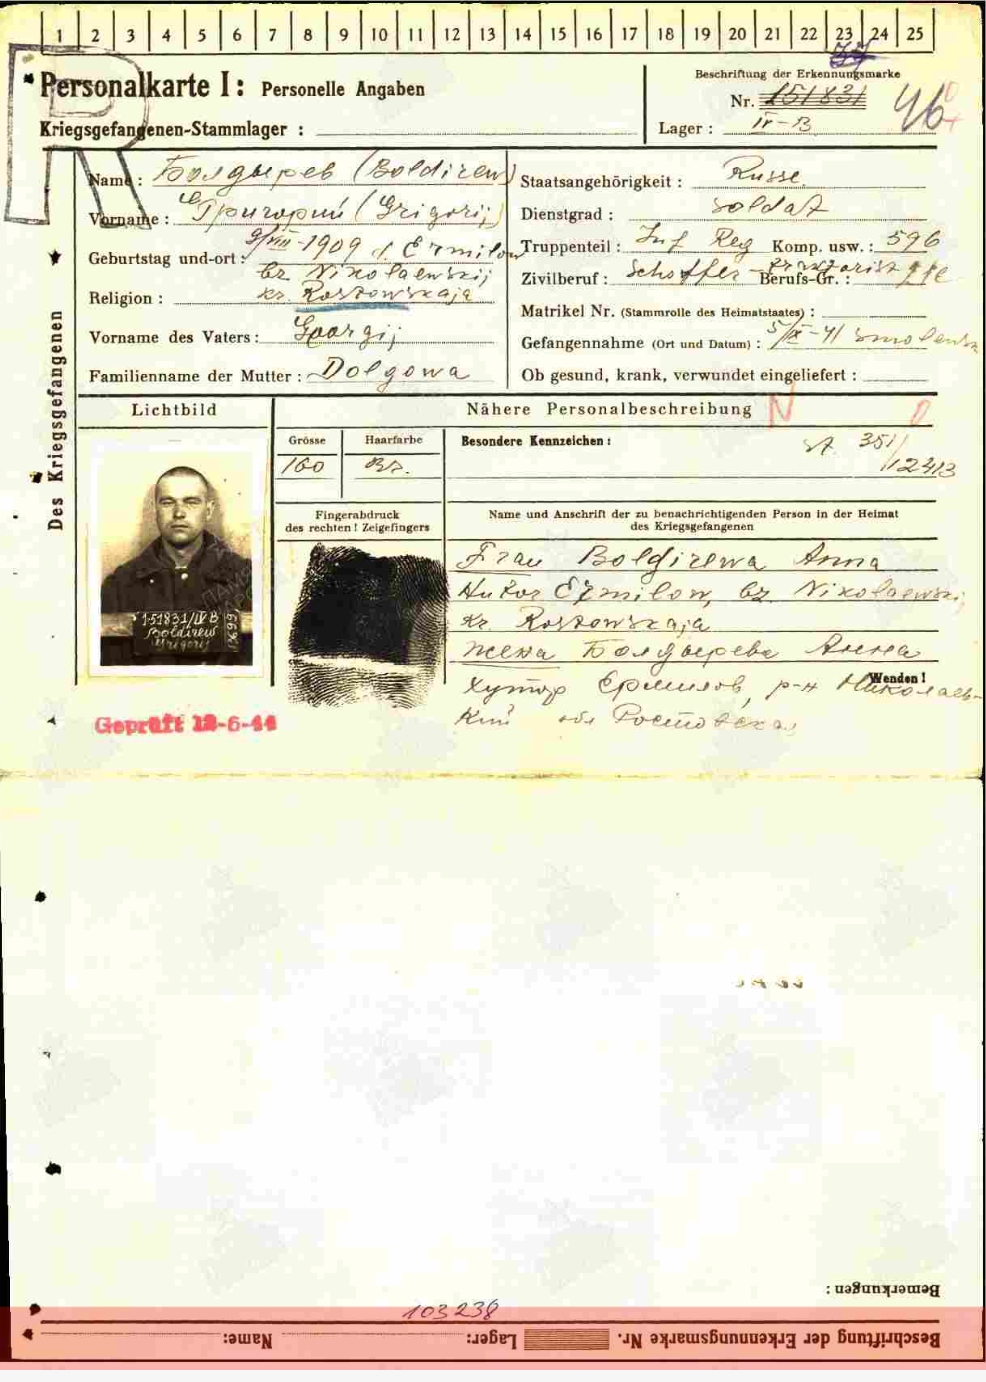 1 2 3 4 5 6 7 8 9 10 11 12 13 14 15 16 17 18 19 20 21 22 23 24 25
Personalkarte I: Personelle Angaben
Beschriftung der Erkennungsmarke
Nr. 151831
46
Kriegsgefangenen-Stammlager :
Lager : IV-B
Name : Болдырев (Boldirew)
Staatsangehörigkeit : Russe
Vorname : Григорий (Grigorij)
Dienstgrad : Soldat
Geburtstag und-ort : 9/VIII-1909 d. Ermilow
Truppenteil : Inf Reg Komp. usw. : 596
bz Nikolaewskij
Zivilberuf : Schoffer- Berufs-Gr. :
Religion : kr. Rostowskaja
Matrikel Nr. (Stammrolle des Heimatstaates) :
Vorname des Vaters : Georgij
Gefangennahme (Ort und Datum) : 5/X-41 Smolensk
Familienname der Mutter : Dolgowa
Ob gesund, krank, verwundet eingeliefert :
Des Kriegsgefangenen
Lichtbild
Nähere Personalbeschreibung N
Grösse Haarfarbe Besondere Kennzeichen :
160 Br.
351/
12413
Fingerabdruck
des rechten ! Zeigefingers
Name und Anschrift der zu benachrichtigenden Person in der Heimat
des Kriegsgefangenen
Frau Boldirewa Anna
Hutor Ermilow, bz Nikolaewskij
kr. Rostowskaja
жена Болдырева Анна
Wenden !
хутор Ермилов, р-н Николаев-
кий обл Ростовская
151831/IV B
Boldirew
Grigorij
Geprüft 12-6-44
Bemerkungen :
103238
Beschriftung der Erkennungsmarke Nr. Lager: Name: